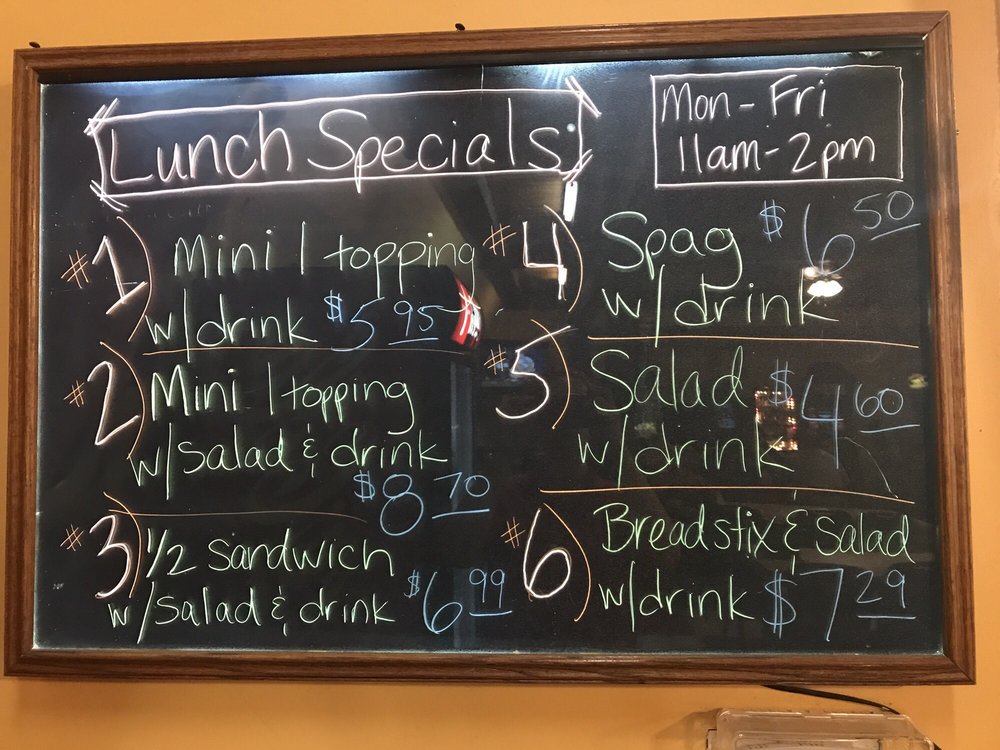 Lunch Specials
Mon - Fri
11am - 2pm
#1) Mini 1 topping
w/drink $5.95
#2) Mini 1 topping
w/Salad & drink
$8.70
#3) 1/2 Sandwich
w/Salad & drink $6.99
#4) Spag $6.50
w/drink
#5) Salad $4.60
w/drink
#6) Breadstix & Salad
w/drink $7.29